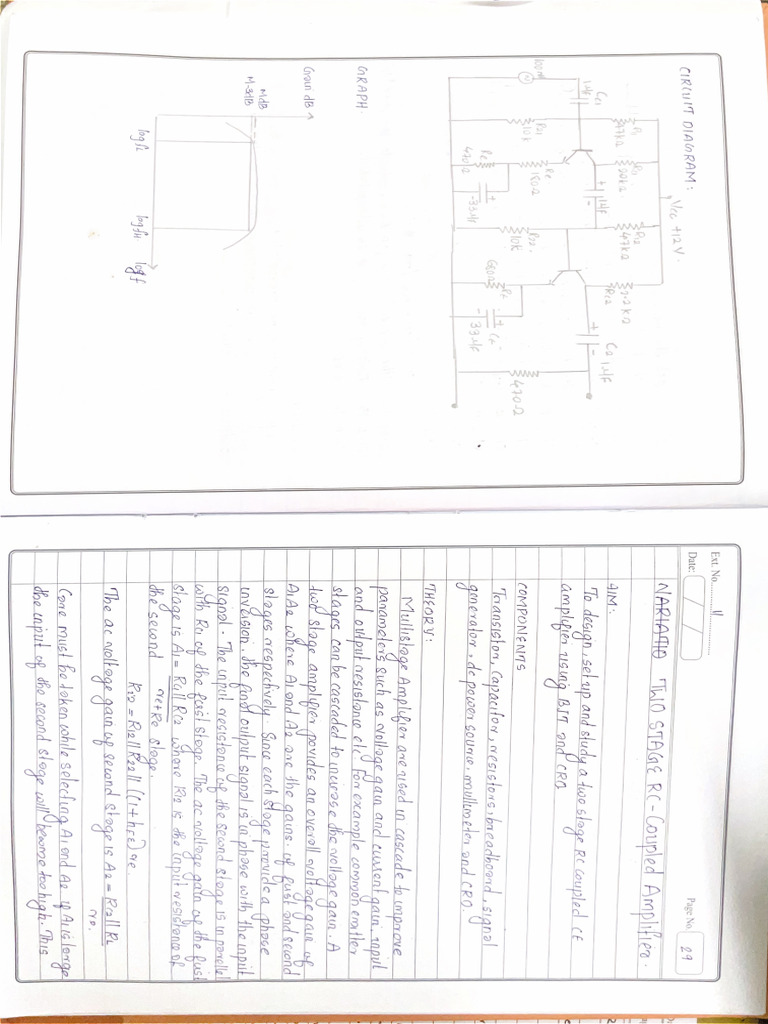 CIRCUIT DIAGRAM:
Vcc +12V.
R11
47kΩ
Rc1
2.2kΩ
R12
47kΩ
Rc2
2.2kΩ
Cc1
1μF
1μF
C2 1μF
100m
R21
10k
Re
180Ω
R22
10k
RE
470Ω
33μF
680Ω
CE
33μF
470Ω
GRAPH
Gain dB
MdB
M-3dB
log fL
log fH
log f
Ext. No. 4
Page No. 29
Date:
TWO STAGE RC-Coupled Amplifier.
AIM:
To design, setup and study a two stage RC coupled CE
amplifier using BJT and CRO
COMPONENTS
Transistor, capacitor, resistors, breadboard, signal
generator, dc power source, multimeter and CRO.
THEORY:
Multistage Amplifier are used in cascade to improve
parameters such as voltage gain and current gain, input
and output resistance etc. For example common emitter
stages can be cascaded to increase the voltage gain. A
two stage amplifier provides an overall voltage gain of
A1A2 where A1 and A2 are the gains. of first and second
stages respectively. Since each stage provide a phase
invesion, the final output signal is in phase with the input
signal. The input resistance of the second stage is in parallel
with Rc1 of the first stage. The ac voltage gain of the first
stage is A1 = Rc1||Ri2 where Ri2 is the input resistance of
re+Re
the second stage.
Ri2 = R12||R22||((1+hFE)re
The ac voltage gain of second stage is A2 = Rc2||RL
re.
Care must be taken while selecting A1 and A2 if A1 is large
the input of the second stage will become too high. This